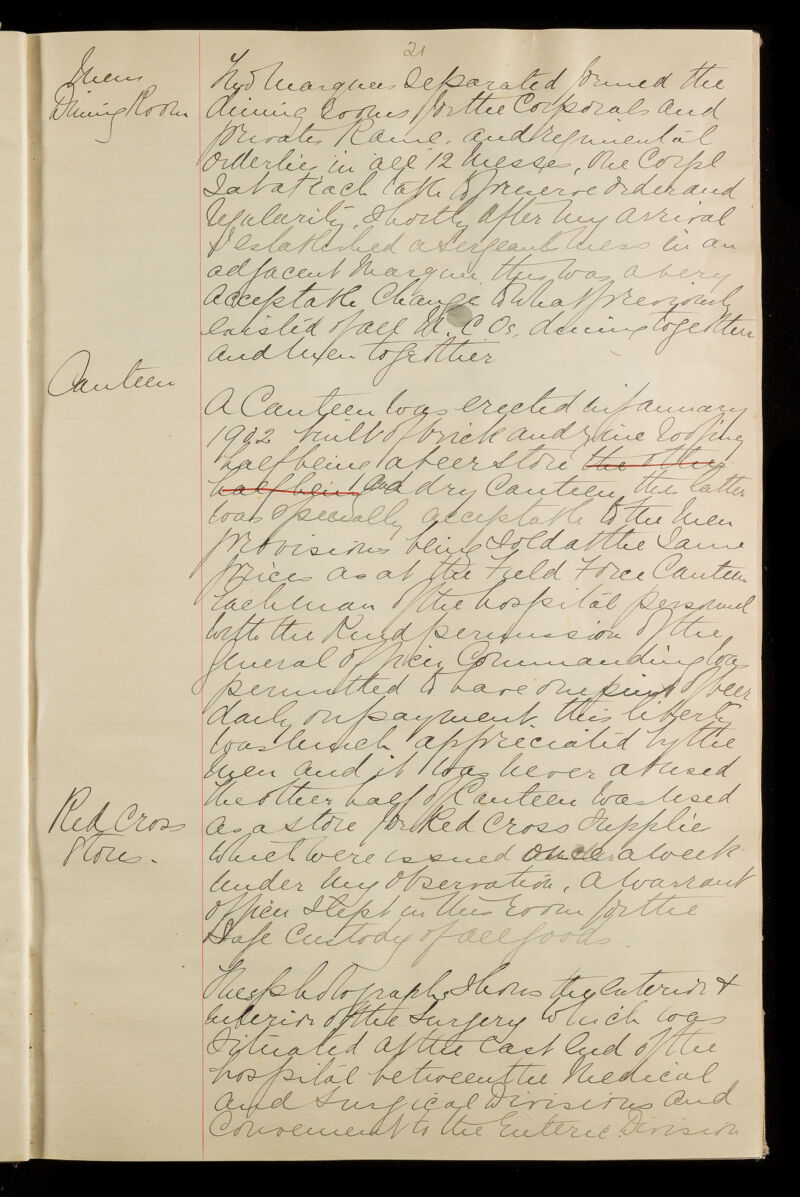 21
Mens
Dining Room
Two Marquees Separated formed the
dining rooms for the Corporals and
privates R.A.M.C. and regimental
Orderlies in all 12 Messes, One Corpl
Sat at each table to preserve order and
regularity. Shortly after my arrival
I established a Sergeants Mess in an
adjacent Marquee this was a very
acceptable Change to what previously
existed of all N.C.Os. dining together
and Men together
Canteen
A Canteen was erected in January
1902 built of brick and zinc roofing
half being a beer store the other
half being and dry Canteen, this latter
was specially acceptable to the Men
provisions being Sold at the Same
prices as at the Field Force Canteen
Each man of the hospital personnel
with the kind permission of the
General officer Commanding was
permitted to have one pint of beer
daily on payment. this liberty
was much appreciated by the
Men and it was never abused
Red Cross
Stores.
The other half of Canteen was used
as a store for Red Cross Supplies
which were issued once a week
under my observation. A Warrant
officer Slept in this room for the
Safe Custody of all goods.
These photographs Shows the exterior &
interior of the Surgery which was
Situated at the East End of the
hospital between the Medical
and Surgical Divisions and
Convenient to the Enteric Division